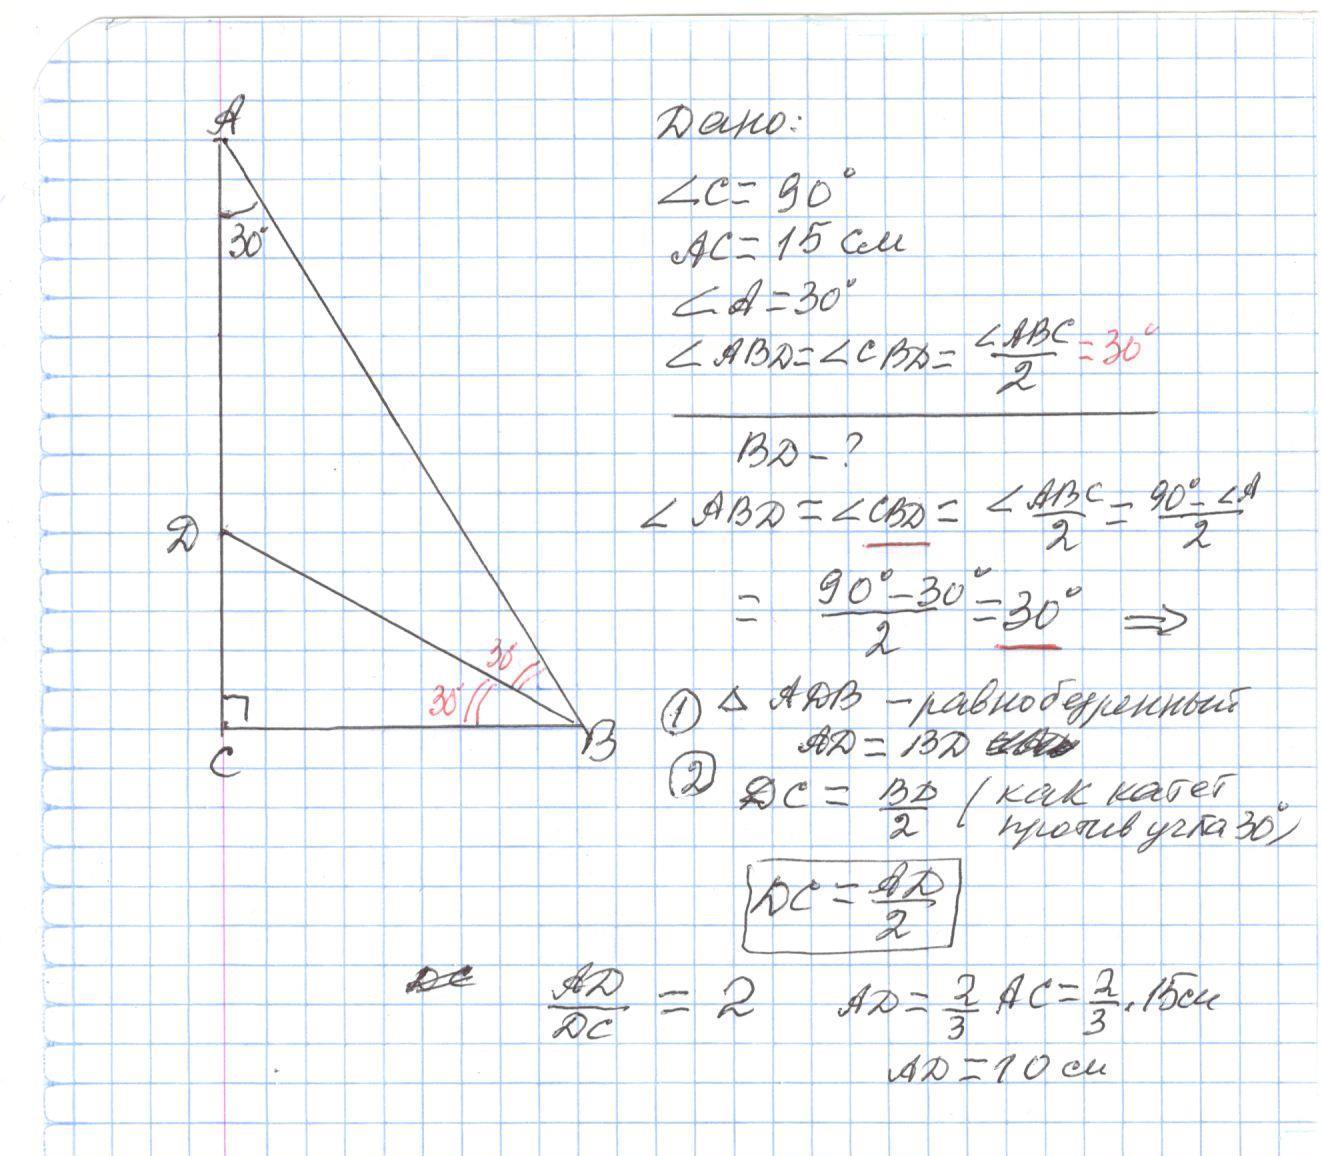 A
30°
D
30°
30°
C
B
Дано:
∠C = 90°
AC = 15 см
∠A = 30°
∠ABD = ∠CBD = ∠ABC/2 = 30°
BD - ?
∠ABD = ∠CBD = ∠ABC/2 = 90° - ∠A/2
= 90° - 30°/2 = 30° ⇒
① △ ADB - равнобедренный
AD = BD
② DC = BD/2 (как катет
против угла 30°)
DC = AD/2
AD/DC = 2 AD = 2/3 AC = 2/3 · 15см
AD = 10 см